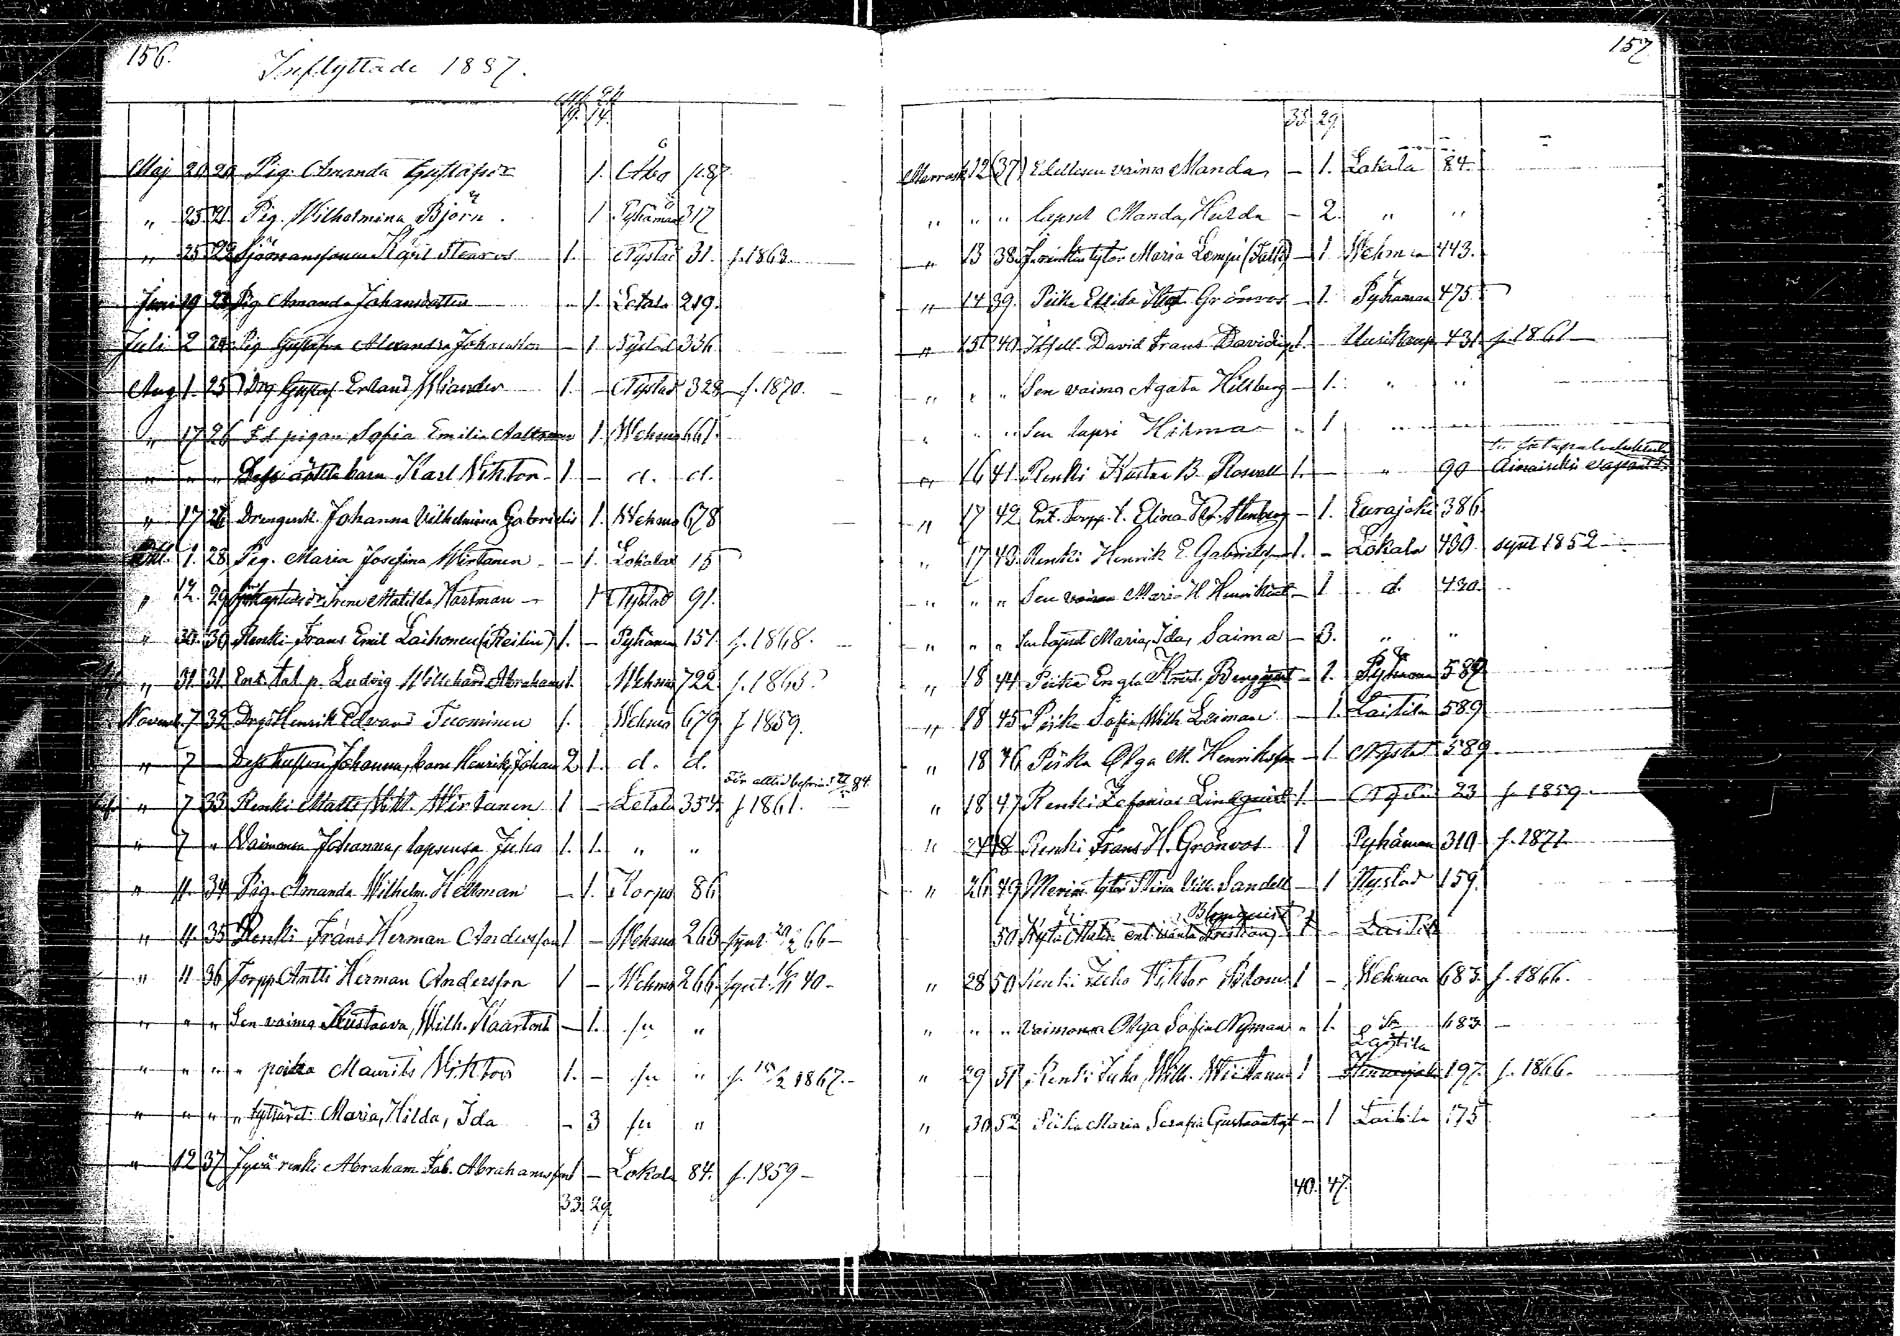 156.
Inflyttade 1887.
19. 14.
Maj 20 20 Pig. Amanda Gustafsd. 1. Åbo p.87
" 25 21. Pig. Wilhelmina Björn 1 Pyhämaa 317
" 25 22 Sjömanssonen Karl Stenros 1. Nystad 31. f. 1863.
Juni 19 23 Pig Amanda Johansdotter - 1. Letala 219.
Juli 2 24 Pig Gustafva Alexandra Johansdotter - 1 Nystad 336
Aug 1. 25 Drg Gustaf Erland Wiander 1. - Nystad 328 f. 1870.
" 17 26 F.d. pigan Sofia Emilia Aaltonen 1 Wehmo 661.
" " " Dess oäkta barn Karl Wiktor 1 - d. d.
" 17 26 Drengenk. Johanna Vilhelmina Gabrielis 1. Wehmo 678
Okt. 1. 28 Pig. Maria Josefina Wirtanen - 1. Lokalax 15
" 12. 29 Irene Matilda Hartman - 1 Nystad 91.
" 30. 30 Renki Frans Emil Laihonen (Reilin) 1. - Pyhämaa 151 f. 1868.
" 31 31 Enk. tal. p. Ludvig Willehard Abrahamss. 1. Wehmo 722 f. 1865.
Novemb. 7 32 Drg Henrik Edvard Tuominen 1. Wehmo 679 f 1859.
" 7 Dess hustru Johanna, barn Henrik, Johan 2 1. d. d.
För alltid befriad 84.
" 7 33 Renki Matts Wilh. Wirtanen 1 - Letala 354 f 1861.
" 7 " Vaimonsa Johanna, lapsensa Juha 1. 1. " "
" 11. 34 Pig. Amanda Wilhelm. Hellman - 1. Korpo 86
" 11. 35 Renki Frans Herman Andersson 1 - Wehmo 263 synt. 20/2 66 -
" 11 36 Torpp. Antti Herman Andersson 1 - Wehmo 266 synt. 40 -
" " " Sen vaimo Kustaava Wilh. Kaarlont. - 1. su "
" " " " poika Maurits Wiktor 1. - su " f. 15/2 1867. -
" " " " tyttäret: Maria, Hilda, Ida - 3 su "
" 12 37 Hyvä renki Abraham Fab. Abrahamsson 1 - Lokala 84. f. 1859 -
33. 29
157
33. 29.
Marrask. 12 (37) Edellisen vaimo Manda - 1. Lokala 84.
" " " lapset Manda, Hulda - 2. " "
" 13 38. tytär Maria Lempi (Fält) - 1 Wehmaa 443.
" 14 39. Piika Ellida Grönroos - 1. Pyhämaa 475
" 15 40. Itsell. David Frans Davidss. 1. Uusikaup. 431 f. 1861 -
" " " Sen vaimo Agata Hillberg - 1. " "
" " " Sen lapsi Hilma - 1 " "
" 16 41. Renki Kustaa B. Rosvall 1. - " 90
" 17 42. Ent. Torpp. t. Elina Stenberg - 1. Eurajoki 386.
" 17 43. Renki Henrik E. Gabrielsson 1. - Lokala 430. synt 1852
" " " Sen vaimo Maria H Henrikint. - 1 d. 430.
" " " Sen lapset Maria, Ida, Saima - 3. " "
" 18 44 Piika Engla Krist. Bergqvist - 1. Pyhämaa 589
" 18 45 Piika Sofia Wilh Leiman - 1. Laitila 589
" 18 46 Piika Olga M. Henriksson - 1 Nystad 589
" 18 47 Renki Zefanias Lindqvist 1. - Nystad 23 f. 1859.
" 24 48 Renki Frans H. Grönroos 1 Pyhämaa 310 f. 1871
" 26 49 Merim. tytär Stina Vilh. Sandell - 1 Nystad 159.
Blomqvist
50 1 - Laitila
" 28 50 Renki Juho Viktor Blom 1 - Wehmaa 683. f. 1866.
" " " Vaimonsa Olga Sofia Nyman " 1. sa 683 -
Laitila
" 29 51 Renki Juho Wilh. Wirtanen 1 197. f. 1866.
" 30 52 Piika Maria Serafia Gustaantyt. - 1 Laitila 175
40. 47.